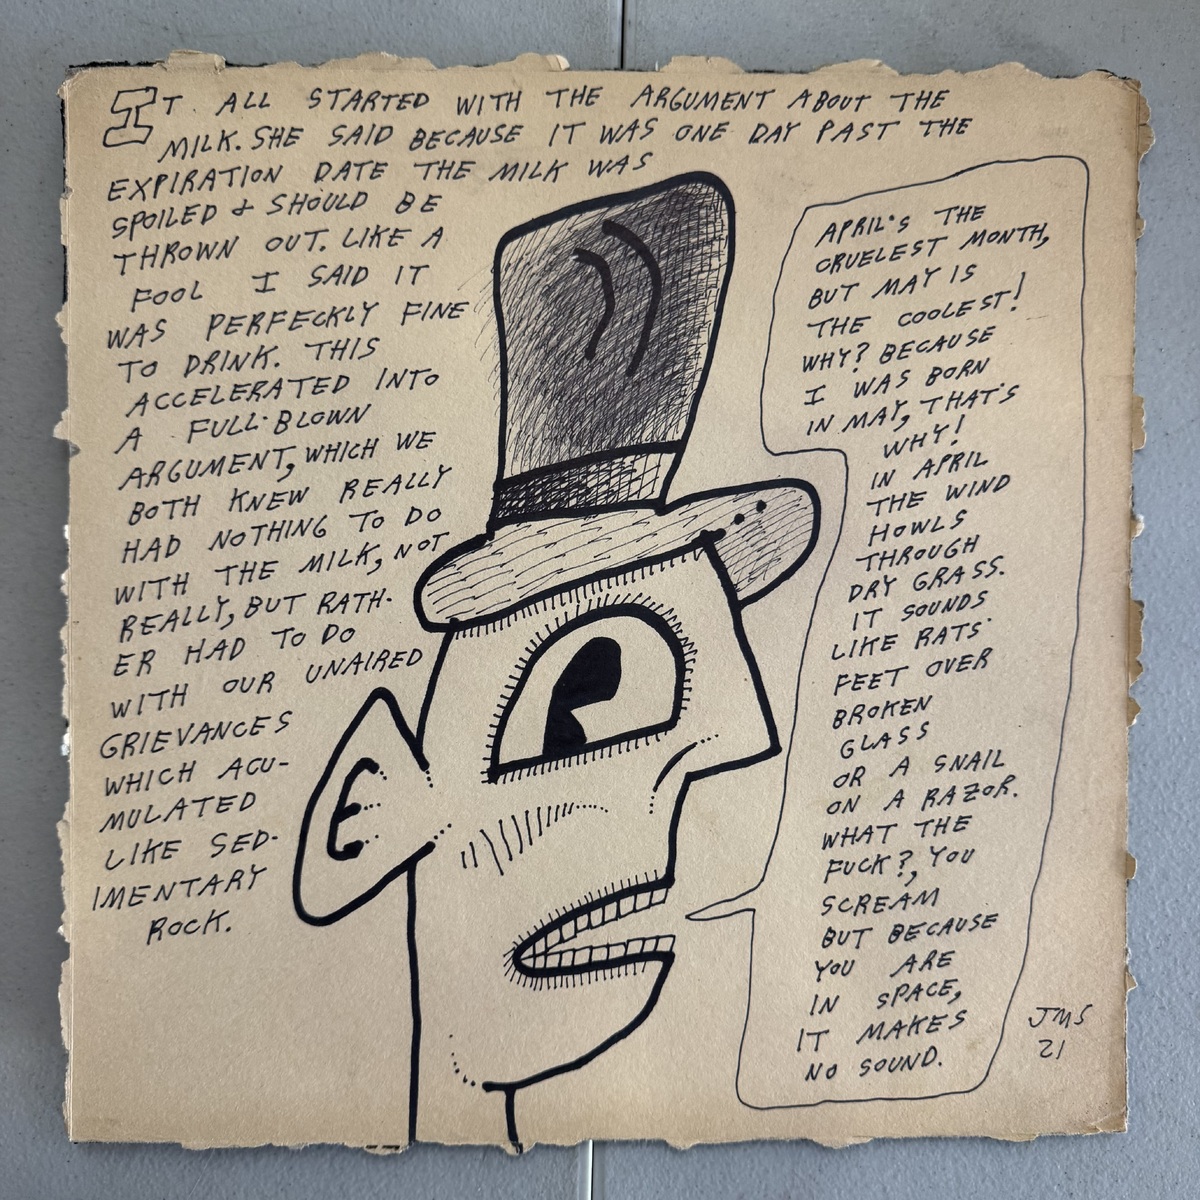 IT ALL STARTED WITH THE ARGUMENT ABOUT THE
MILK. SHE SAID BECAUSE IT WAS ONE DAY PAST THE
EXPIRATION DATE THE MILK WAS
SPOILED & SHOULD BE
THROWN OUT. LIKE A
FOOL I SAID IT
WAS PERFECKLY FINE
TO DRINK. THIS
ACCELERATED INTO
A FULL-BLOWN
ARGUMENT, WHICH WE
BOTH KNEW REALLY
HAD NOTHING TO DO
WITH THE MILK, NOT
REALLY, BUT RATH-
ER HAD TO DO
WITH OUR UNAIRED
GRIEVANCES
WHICH ACU-
MULATED
LIKE SED-
IMENTARY
ROCK.
APRIL'S THE
CRUELEST MONTH,
BUT MAY IS
THE COOLEST!
WHY? BECAUSE
I WAS BORN
IN MAY, THAT'S
WHY!
IN APRIL
THE WIND
HOWLS
THROUGH
DRY GRASS.
IT SOUNDS
LIKE RATS'
FEET OVER
BROKEN
GLASS
OR A SNAIL
ON A RAZOR.
WHAT THE
FUCK?, YOU
SCREAM
BUT BECAUSE
YOU ARE
IN SPACE,
IT MAKES
NO SOUND.
JMS
21